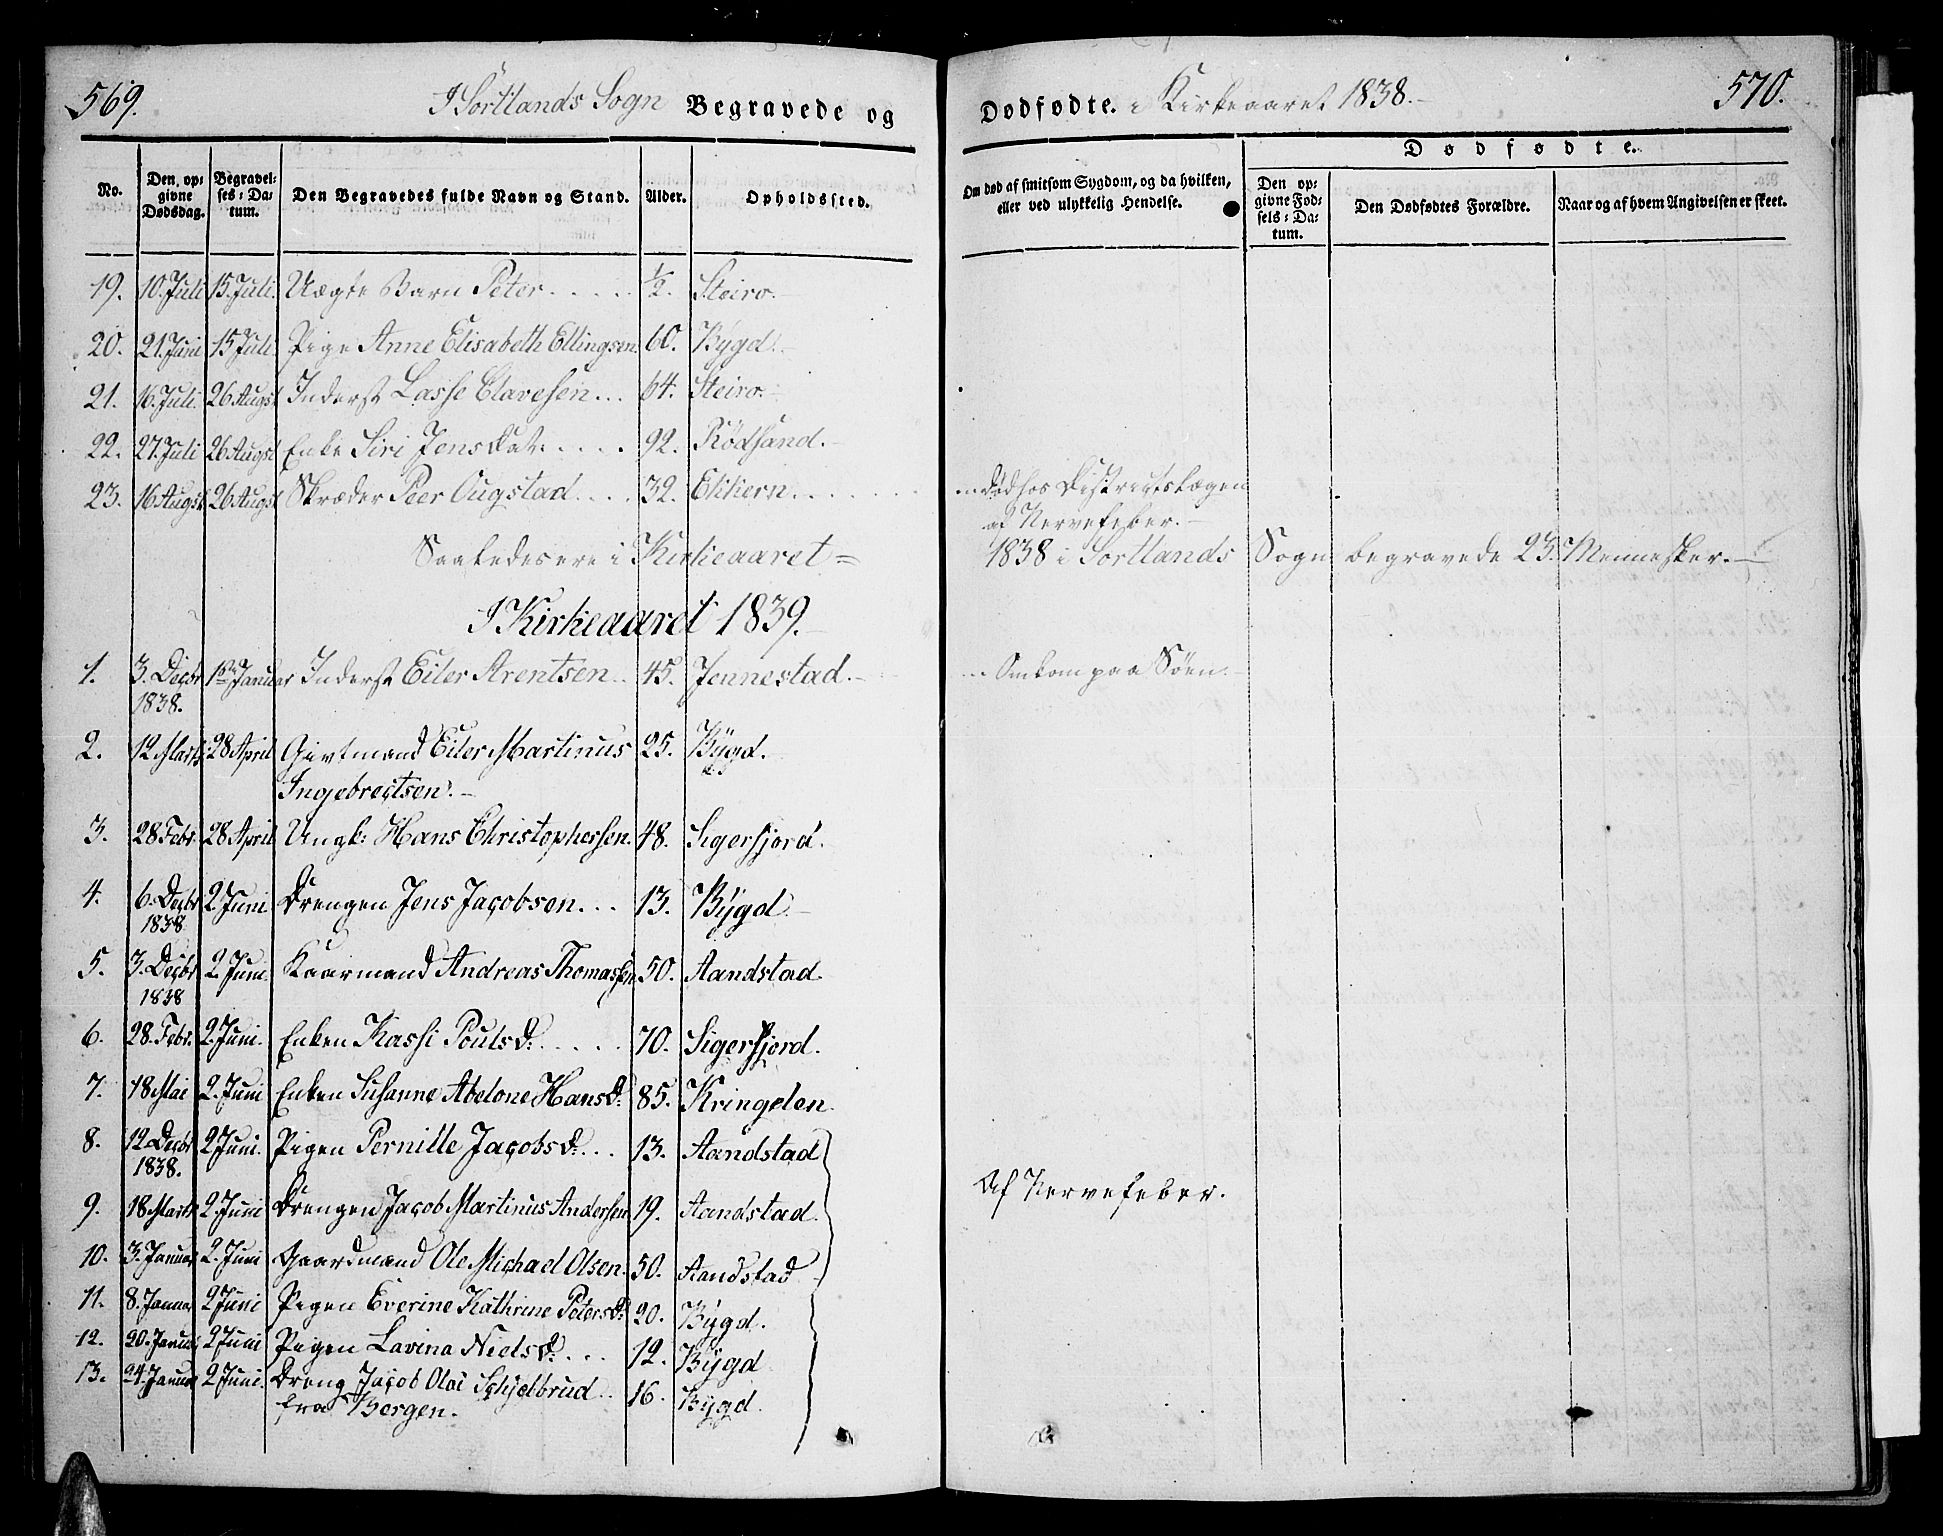 569.
I Sortlands Sogn Begravede og
Dødfødte. i Kirkeaaret 1838.
570.
No.
Den opgivne Dødsdag.
Begravelses-Datum.
Den Begravedes fulde Navn og Stand.
Alder.
Opholdssted.
Om død af smitsom Sygdom, og da hvilken, eller ved ulykkelig Hendelse.
Dødfødte.
Den opgivne Fødsels-Datum.
Den Dødfødtes Forældre.
Naar og af hvem Angivelsen er skeet.
19. 10. Juli 15. Juli. Uægte Barn Peter . . . . . ½. Steiro.
20. 21. Juni 15 Juli Pige Anne Elisabeth Ellingsen 60. Bygd.
21. 16. Juli. 26 Augst Inderst Lasse Clavesen . . . 64. Steiro.
22. 27. Juli 26 Augst Enke Siri Jens Dat. . . . . 92. Rödsand.
23. 16 Augst 26 Augst Skræder Peer Ougstad . . . . 32. Ekkern. . . . . . . Död hos Districtslægen
af Nervefeber.
Saaledes ere i Kirkeaaret = 1838 i Sortlands Sogn begravede 23. Mennesker.
I Kirkeaaret 1839.
1. 3. Decbr 1ste Januar Inderst Eiler Arentsen . . 45. Jennestad. Omkom paa Söen.
1838.
2. 12 Marts 28 April Givtmand Eiler Martinus 25. Bygd.
Ingebrectsen.
3. 28 Febr. 28 April Ungk: Hans Christophersen. 48. Sigerfjord.
4. 6. Decbr 2 Juni Drengen Jens Jacobsen . . . 13. Bygd
1838
5. 3. Decbr 2. Juni. Kaarmand Andreas Thomassen 50. Aandstad.
1838
6. 28. Febr. 2. Juni. Enken Kassi Pouls D. . . . . 70. Sigerfjord.
7. 18 Mai 2. Juni Enken Susanne Abelone Hans D. 85. Kringelen.
8. 12 Decbr 2 Juni. Pigen Pernille Jacobs D. . . . 13. Aandstad
1838. Af Nervefeber.
9. 18 Marts 2. Juni Drengen Jacob Martinus Andersen 19. Aandstad.
10. 3. Januar 2. Juni Gaardmand Ole Michael Olsen. 50. Aandstad
11. 8. Januar 2 Juni Pigen Everine Kathrine Peters D. 20. Bygd.
12. 20. Januar 2 Juni Pigen Lavina Niels D. . . . 12. Bygd
13. 24. Januar 2 Juni. Dreng Jacob Olai Schjelbrud . . 16. Bygd.
fra Bergen.